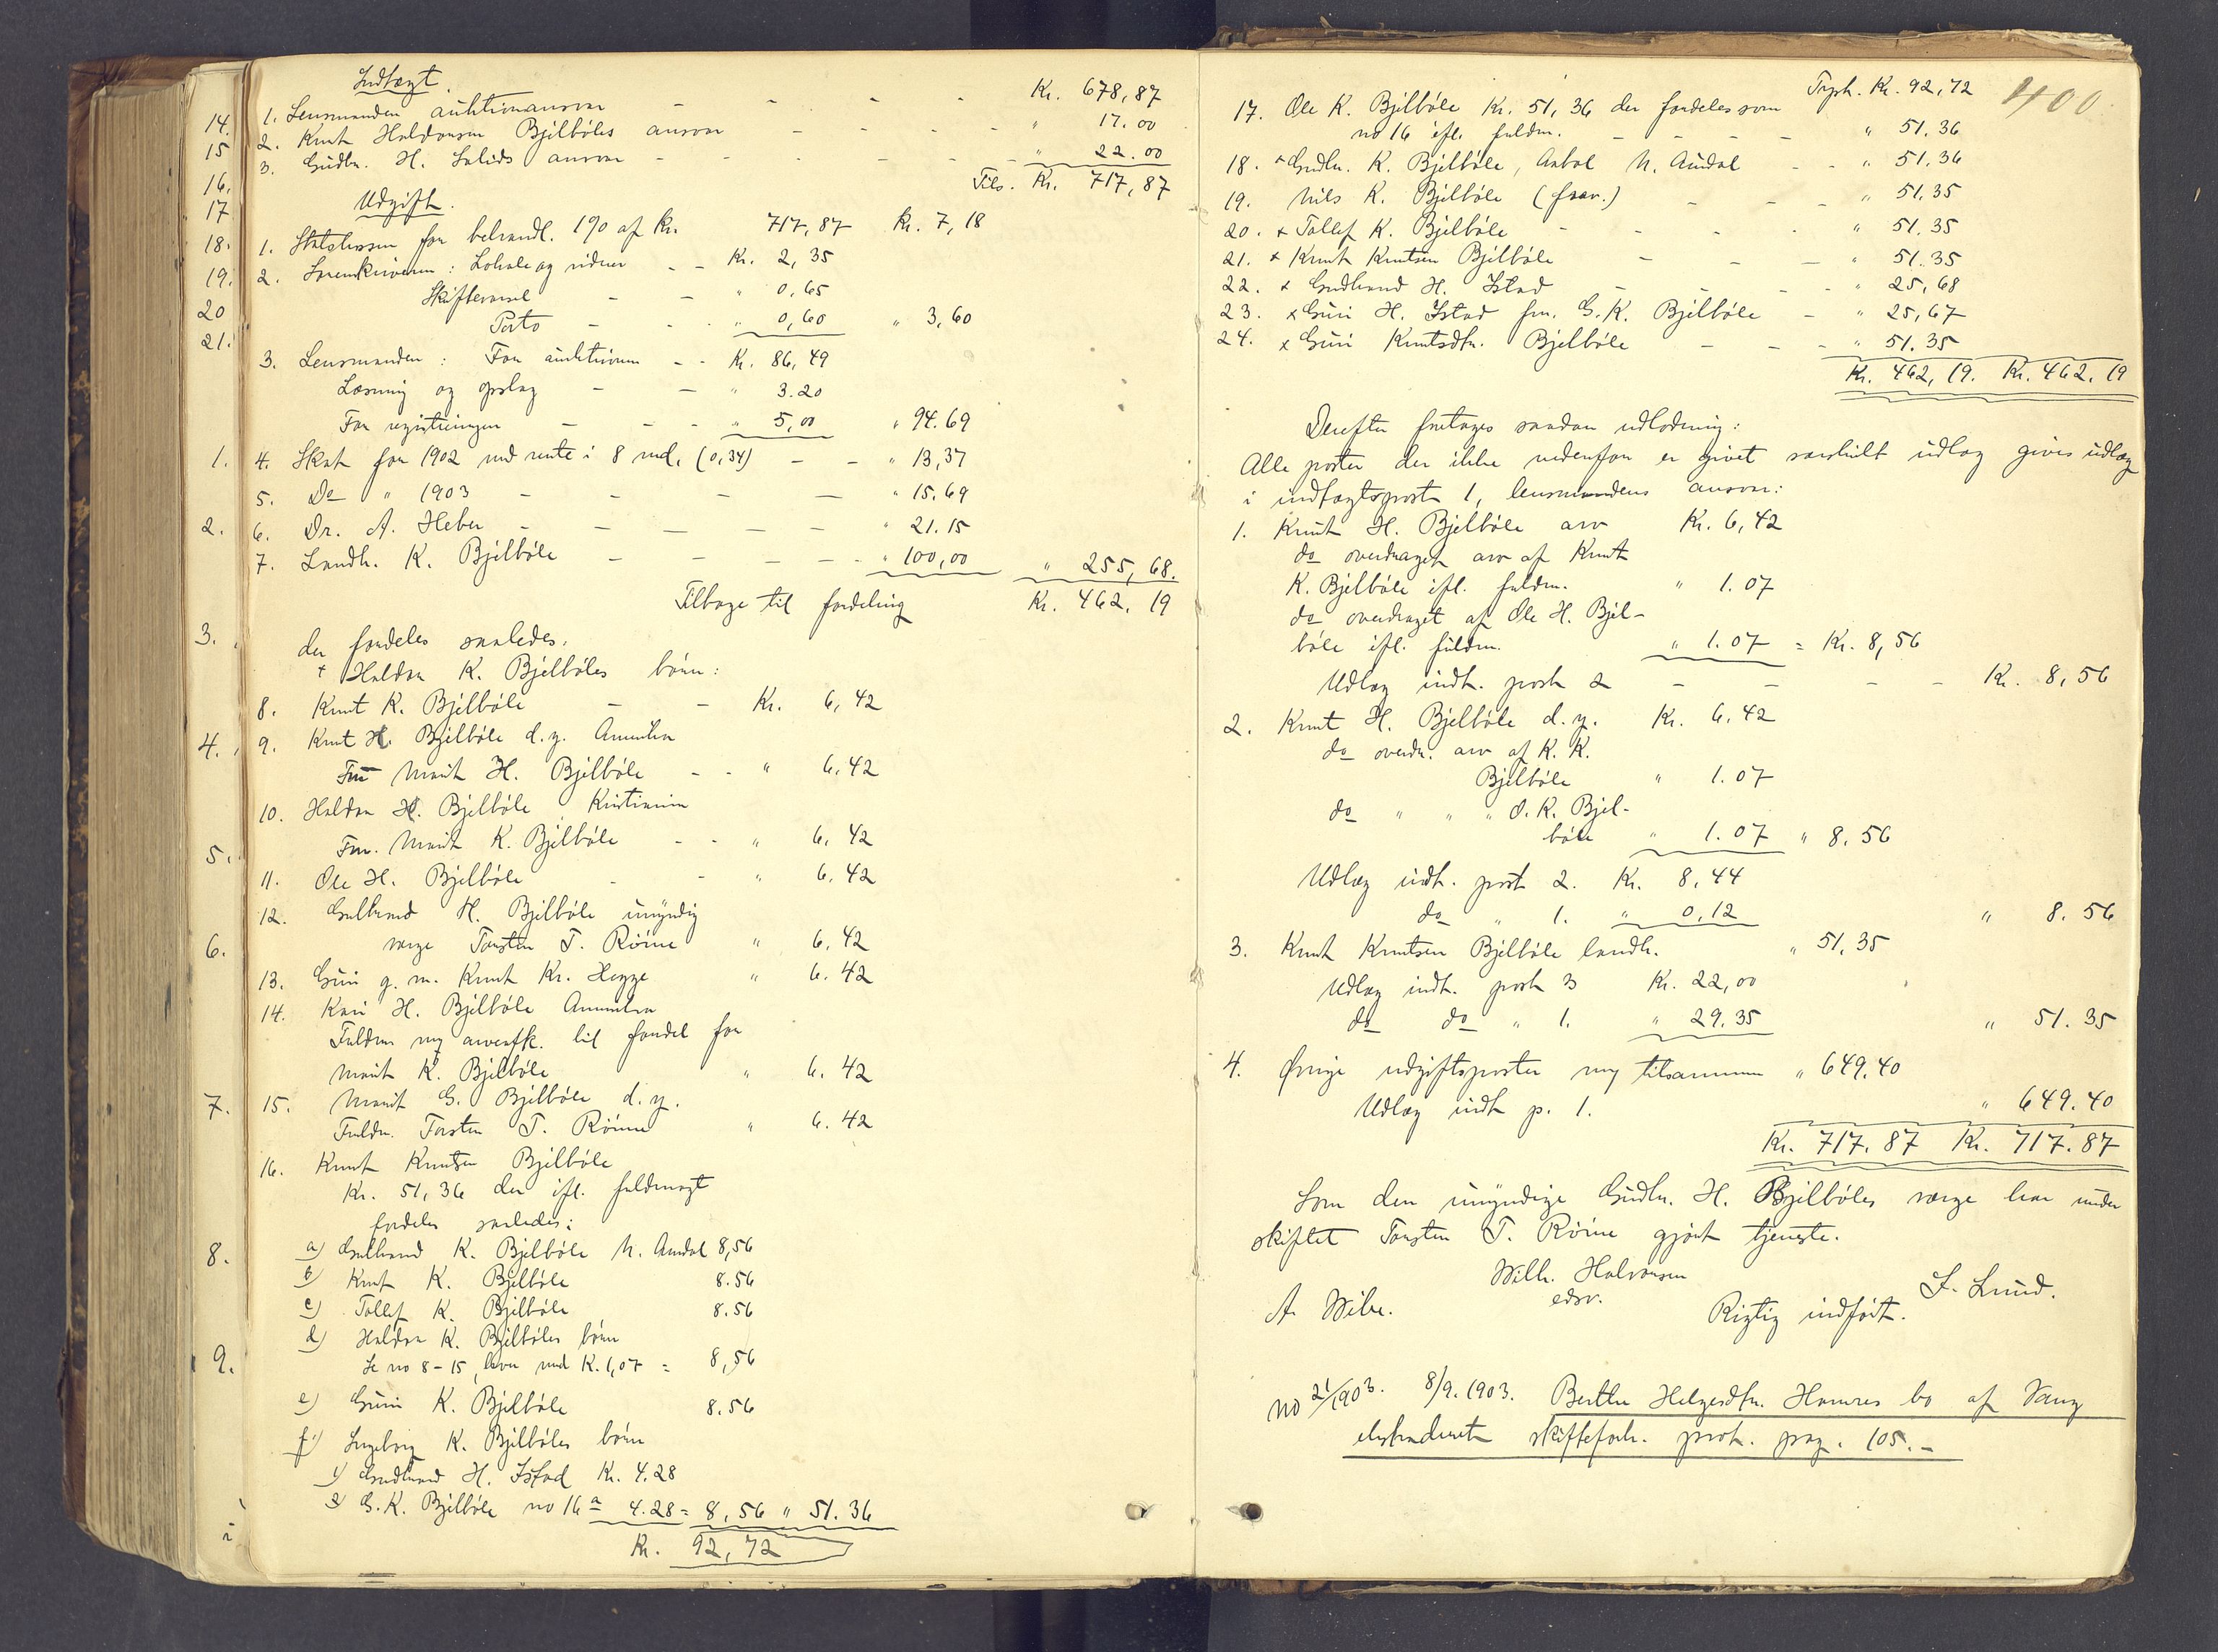 Indtægt.
1. Lensmanden auktionansvar - - - - Kr. 678,87
2. Knut Haldorsen Bjelbøles ansvar - - - - " 17.00
3. Gudbr. H. ansvar - - - - - " 22.00
Tils. Kr. 717,87
Udgift.
1. Statskassen for behandl. 1% af Kr. 717,87 Kr. 7,18
2. Sorenskriveren: Lokale og vidner - - Kr. 2,35
Skiftevarsel - - " 0,65
Porto - - " 0,60 " 3,60
3. Lensmanden: For auktionen - - Kr. 86,49
Læsning og opslag - - " 3.20
For registreringen - - - " 5,00 " 94.69
4. Skat for 1902 med rente i 8 md. (0,34) - - " 13,37
5. Do " 1903 - - - - " 15.69
6. Dr. A. Heber - - - - - " 21.15
7. Landh. K. Bjelbøle - - - - - " 100,00 " 255,68.
Tilbage til fordeling Kr. 462.19
der fordeles saaledes.
+ Haldor K. Bjelbøles børn:
8. Knut K. Bjelbøle - - Kr. 6,42
9. Knut H. Bjelbøle d.y. Amerika
Fm Marit H. Bjelbøle - - " 6,42
10. Haldor H. Bjelbøle, Kristiania
Fm. Marit K. Bjelbøle - - " 6,42
11. Ole H. Bjelbøle - - " 6,42
12. Gulbrand H. Bjelbøle umyndig
verge Torsten T. Rørne " 6,42
13. Guri g. m. Knut Kr. Hegge " 6.42
14. Kari H. Bjelbøle Amerika
Fuldm og arveafk. til fordel for
Marit K. Bjelbøle " 6.42
15. Marit G. Bjelbøle d.y.
Fuldm. Torsten T. Rørne " 6.42
16. Knut Knutsen Bjelbøle
Kr. 51,36 der ifl. fuldmagt
fordeles saaledes:
a) Gulbrand K. Bjelbøle N. Aurdal 8,56
b) Knut K. Bjelbøle 8.56
c) Tollef K. Bjelbøle 8.56
d) Haldor K. Bjelbøles børn
Se no 8-15, hver med K. 1,07 = 8,56
e) Guri K. Bjelbøle 8.56
f) Ingeborg K. Bjelbøles børn
1) Gudbrand H. Istad Kr. 4.28
2) G. K. Bjelbøle no 16 a 4.28 = 8,56 " 51.36
Kr. 92,72
14.
15
16.
17
18.
19.
20
21.
1.
2.
3.
4.
5.
6.
7.
8.
9.
400.
Trpt. Kr. 92,72
17. Ole K. Bjelbøle Kr. 51,36 der fordeles som
no 16 ifl. fuldm. - - - - " 51.36
18. + Gudbr. K. Bjelbøle, Anbal N. Aurdal - - " 51,36
19. Nils K. Bjelbøle (frav.) - - - " 51,35
20. + Tollef K. Bjelbøle - - - - " 51.35
21. + Knut Knutsen Bjelbøle - - - " 51.35
22. + Gudbrand H. Istad - - - " 25,68
23. + Guri H. Istad fm. G. K. Bjelbøle - " 25,67
24. + Guri Knutsdtr. Bjelbøle - - - " 51.35
Kr. 462,19. Kr. 462.19
Derefter foretages saadan udlodning:
Alle poster der ikke nedenfor er givet særskilt udlæg gives udlæg
i indtægtspost 1, lensmandens ansvar:
1. Knut H. Bjelbøle arv Kr. 6,42
do overdraget arv af Knut
K. Bjelbøle ifl. fuldm. " 1.07
do overdraget af Ole H. Bjel-
bøle ifl. fuldm. " 1.07 = Kr. 8,56
Udlæg indt. post 2 - - - - Kr. 8,56
2. Knut H. Bjelbøle d.y. Kr. 6.42
do overdr. arv af K. K.
Bjelbøle " 1.07
do " " " O. K. Bjel-
bøle " 1.07 " 8.56
Udlæg indt. post 2. Kr. 8.44
do " 1. " 0,12 " 8.56
3. Knut Knutsen Bjelbøle landh. " 51,35
Udlæg indt. post 3 Kr. 22,00
do do " 1. " 29.35 " 51.35
4. Øvrige udgiftsposter og tilsammen " 649.40
Udlæg indt p. 1. " 649.40
Kr. 717.87 Kr. 717.87
Som den umyndige Gudbr. H. Bjelbøles verge har under
skiftet Torsten T. Rørne gjort tjeneste.
Wilh. Halvorsen
edsv.
A. Wibe. L. Lund.
Rigtig indført.
no 21/1903. 8/9.1903. Berthe Helgesdtr. Hamres bo af Vang
ekstraderet skifteforh. prot. pag. 105.-